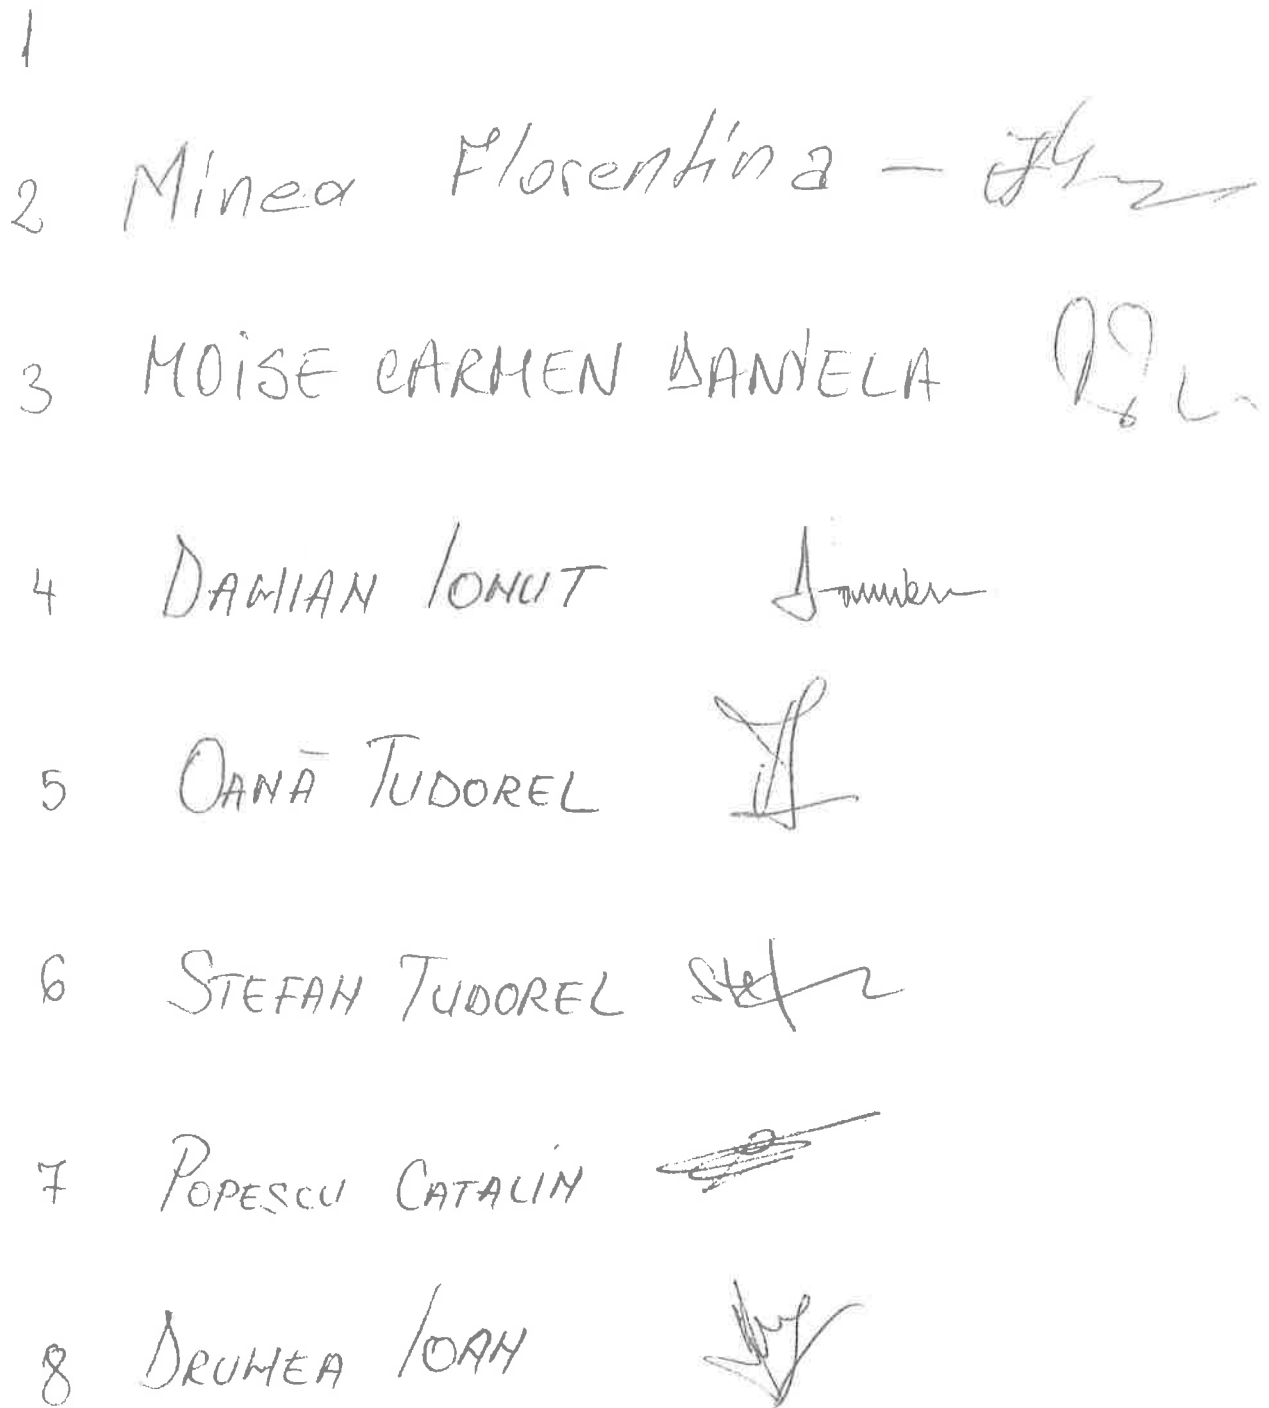 1
2 Minea Florentina -
3 MOISE CARMEN DANIELA
4 DAMIAN IONUT
5 OANĂ TUDOREL
6 STEFAN TUDOREL Stef
7 POPESCU CATALIN
8 DRUMEA IOAN